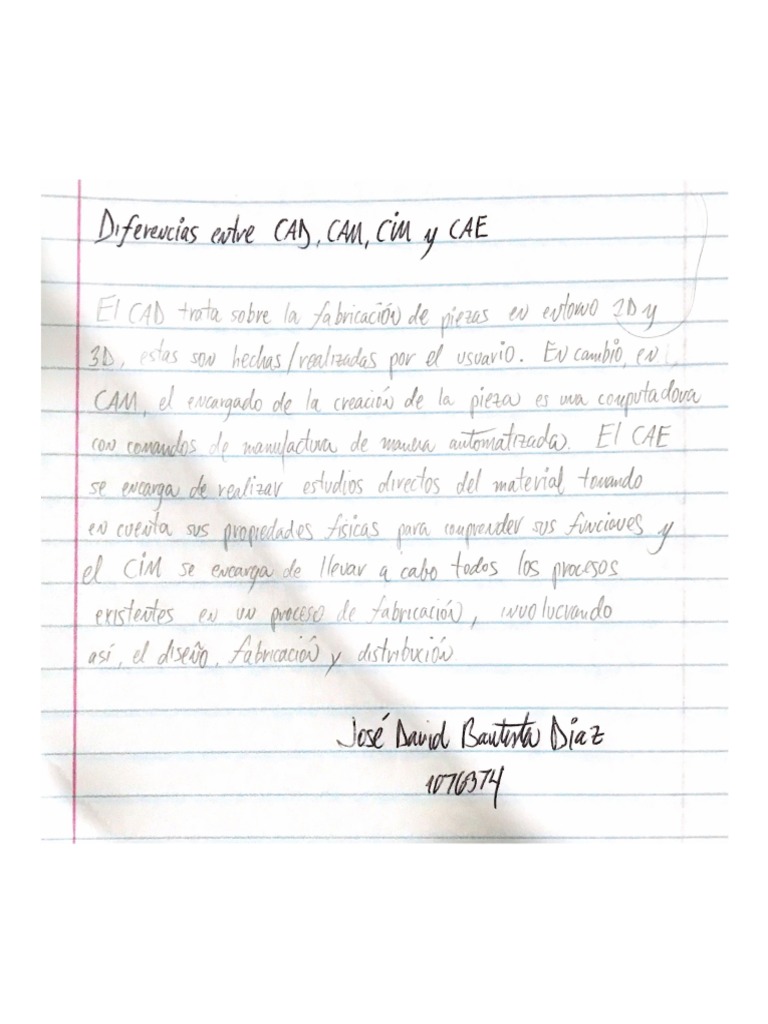 Diferencias entre CAD, CAM, CiM y CAE
El CAD trata sobre la fabricación de piezas en entorno 2D y
3D, estas son hechas/realizadas por el usuario. En cambio, en
CAM, el encargado de la creación de la pieza es una computadora
con comandos de manufactura de manera automatizada. El CAE
se encarga de realizar estudios directos del material tomando
en cuenta sus propiedades físicas para comprender sus funciones y
el CiM se encarga de llevar a cabo todos los procesos
existentes en un proceso de fabricación, involucrando
así, el diseño, fabricación y distribución
José David Bautista Díaz
1076374